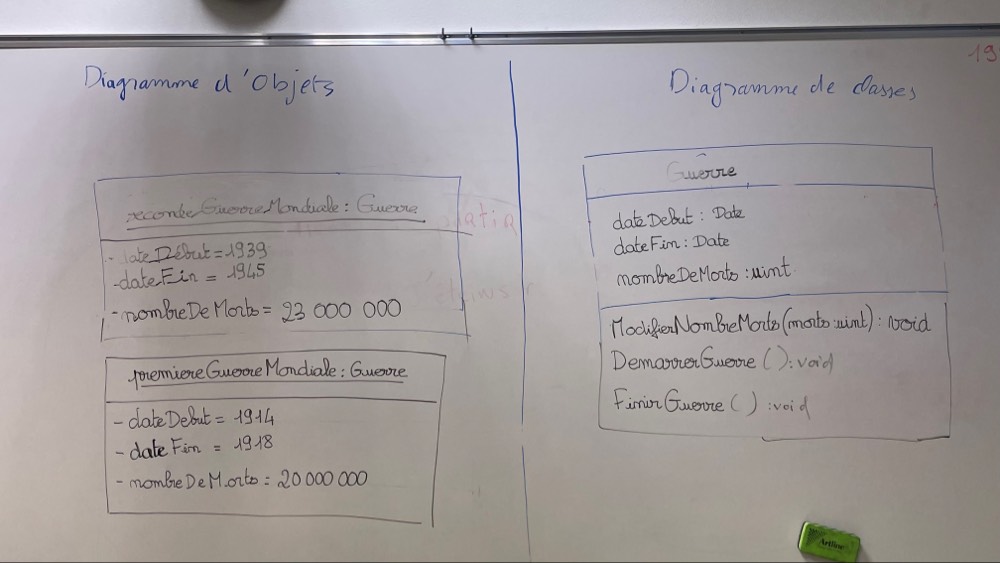 Diagramme d'Objets
secondeGuerreMondiale : Guerre
- dateDébut = 1939
- dateFin = 1945
- nombreDeMorts = 23 000 000
premiereGuerreMondiale : Guerre
- dateDebut = 1914
- dateFin = 1918
- nombreDeMorts = 20 000 000
19
Diagramme de classes
Guerre
dateDebut : Date
dateFin : Date
nombreDeMorts : uint
ModifierNombreMorts(morts : uint) : void
DemarrerGuerre () : void
FinirGuerre () : void
Artline